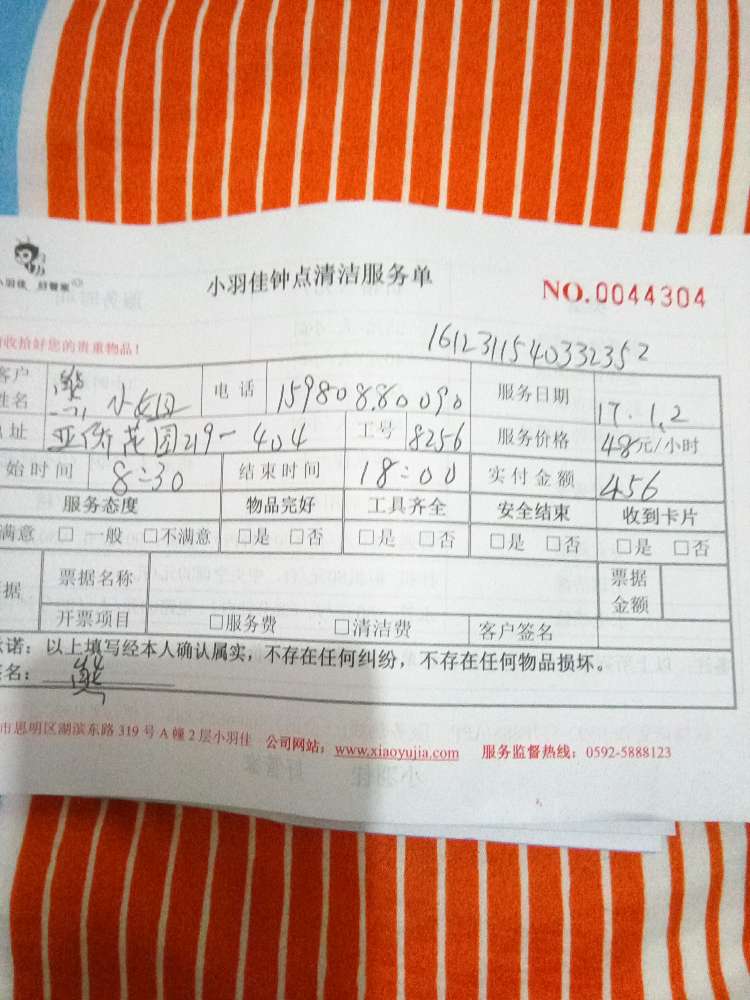 小羽佳 好管家
小羽佳钟点清洁服务单
NO.0044304
收拾好您的贵重物品！
1612311540332352
客户姓名 熊小姐 电话 15980880090 服务日期 17.1.2
址 219-404 工号 8256 服务价格 48元/小时
始时间 8:30 结束时间 18:00 实付金额 456
服务态度 物品完好 工具齐全 安全结束 收到卡片
满意 □ 一般 □不满意 □是 □否 □是 □否 □是 □否 □是 □否
据 票据名称 票据金额
开票项目 □服务费 □清洁费 客户签名
诺：以上填写经本人确认属实，不存在任何纠纷，不存在任何物品损坏。
名：熊
市思明区湖滨东路 319 号 A 幢 2 层小羽佳 公司网站：www.xiaoyujia.com 服务监督热线：0592-5888123